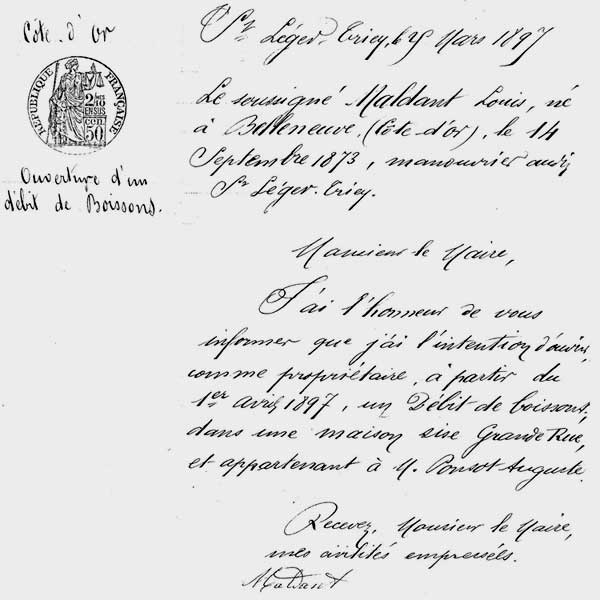 Côte-d'Or
RÉPUBLIQUE FRANÇAISE
2/10
EN SUS
50 cen.
Ouverture d'un
débit de Boissons.
St Léger-Triey, le 25 Mars 1897
Le soussigné Maldant Louis, né
à Belleneuve (Côte-d'or), le 14
Septembre 1873, manouvrier audit
St Léger-Triey.
Monsieur le Maire,
J'ai l'honneur de vous
informer que j'ai l'intention d'ouvrir,
comme propriétaire, à partir du
1er avril 1897, un Débit de boissons,
dans une maison sise Grande Rue,
et appartenant à M. Ponsot Auguste.
Recevez, Monsieur le Maire,
mes civilités empressées.
Maldant